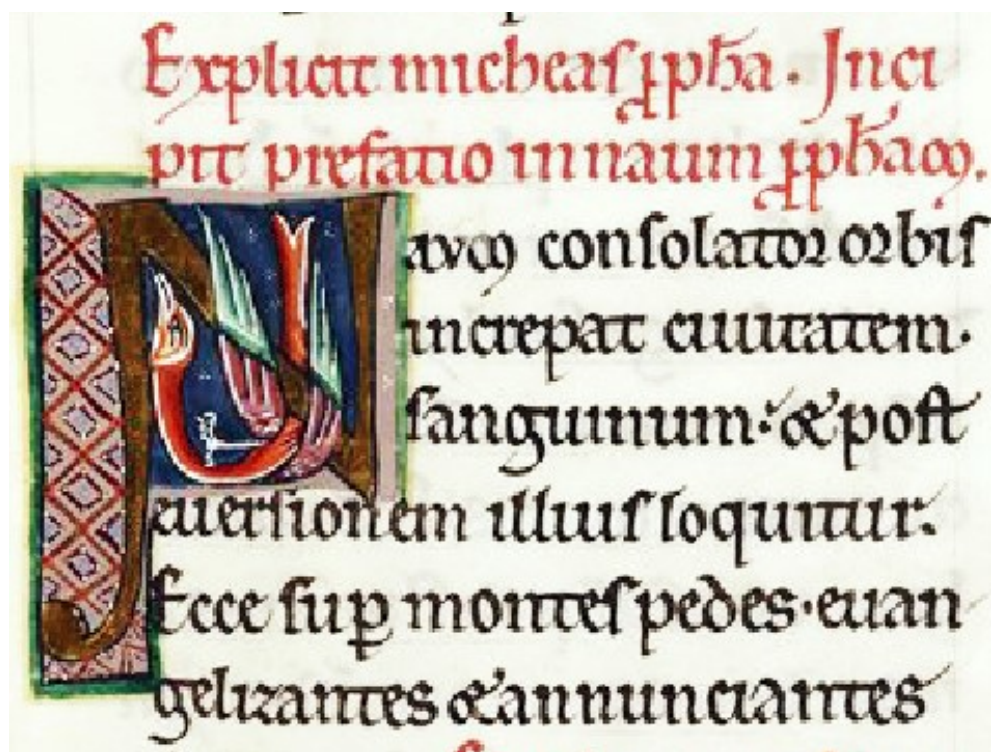 Explicit micheas ꝓpha · Inci
pit prefatio in naum ꝓphaꝫ.
Nauꝫ consolator orbis
increpat ciuitatem·
sanguinum: & post
euersionem illius loquitur.
Ecce suꝑ montes pedes·euan
gelizantes & annunciantes